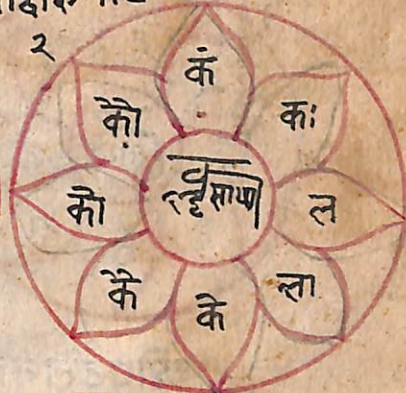 २
कं
कः
ल
ला
के
कै
को
कौ